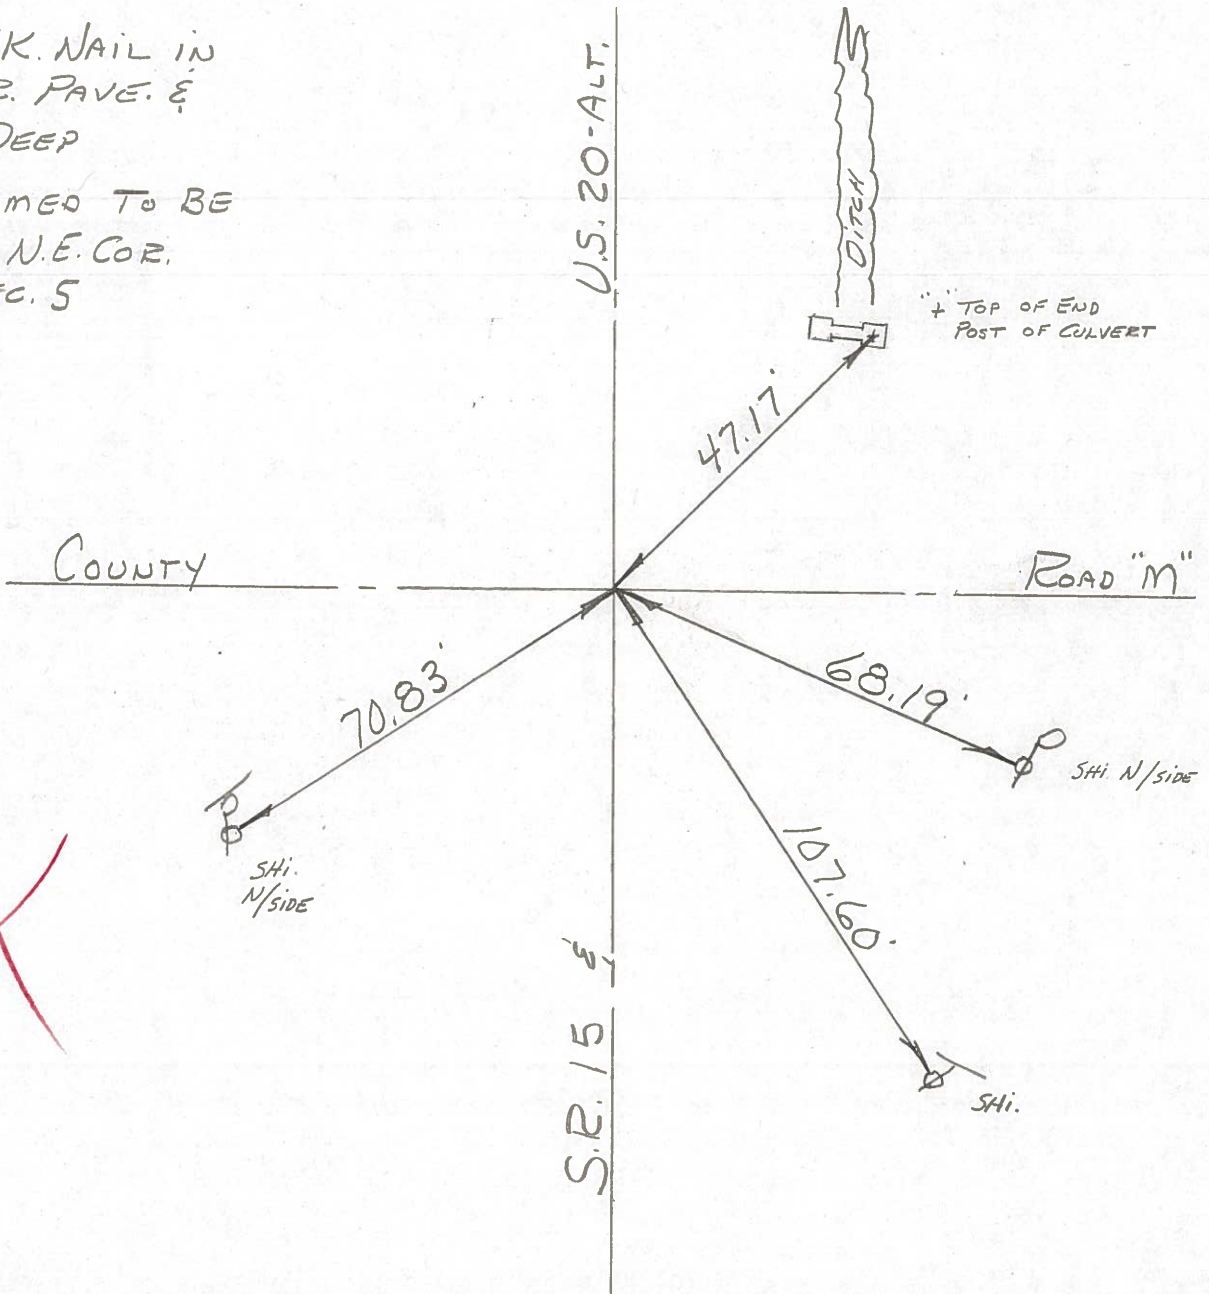 K. NAIL IN
PAVE. &
DEEP
TO BE
N.E. COR.
5
U.S. 20-ALT.
DITCH
"+" TOP OF END
POST OF CULVERT
47.17'
COUNTY
ROAD "M"
70.83'
68.19'
SHi. N/SIDE
SHi.
N/SIDE
107.60'
SHi.
S.R. 15 &